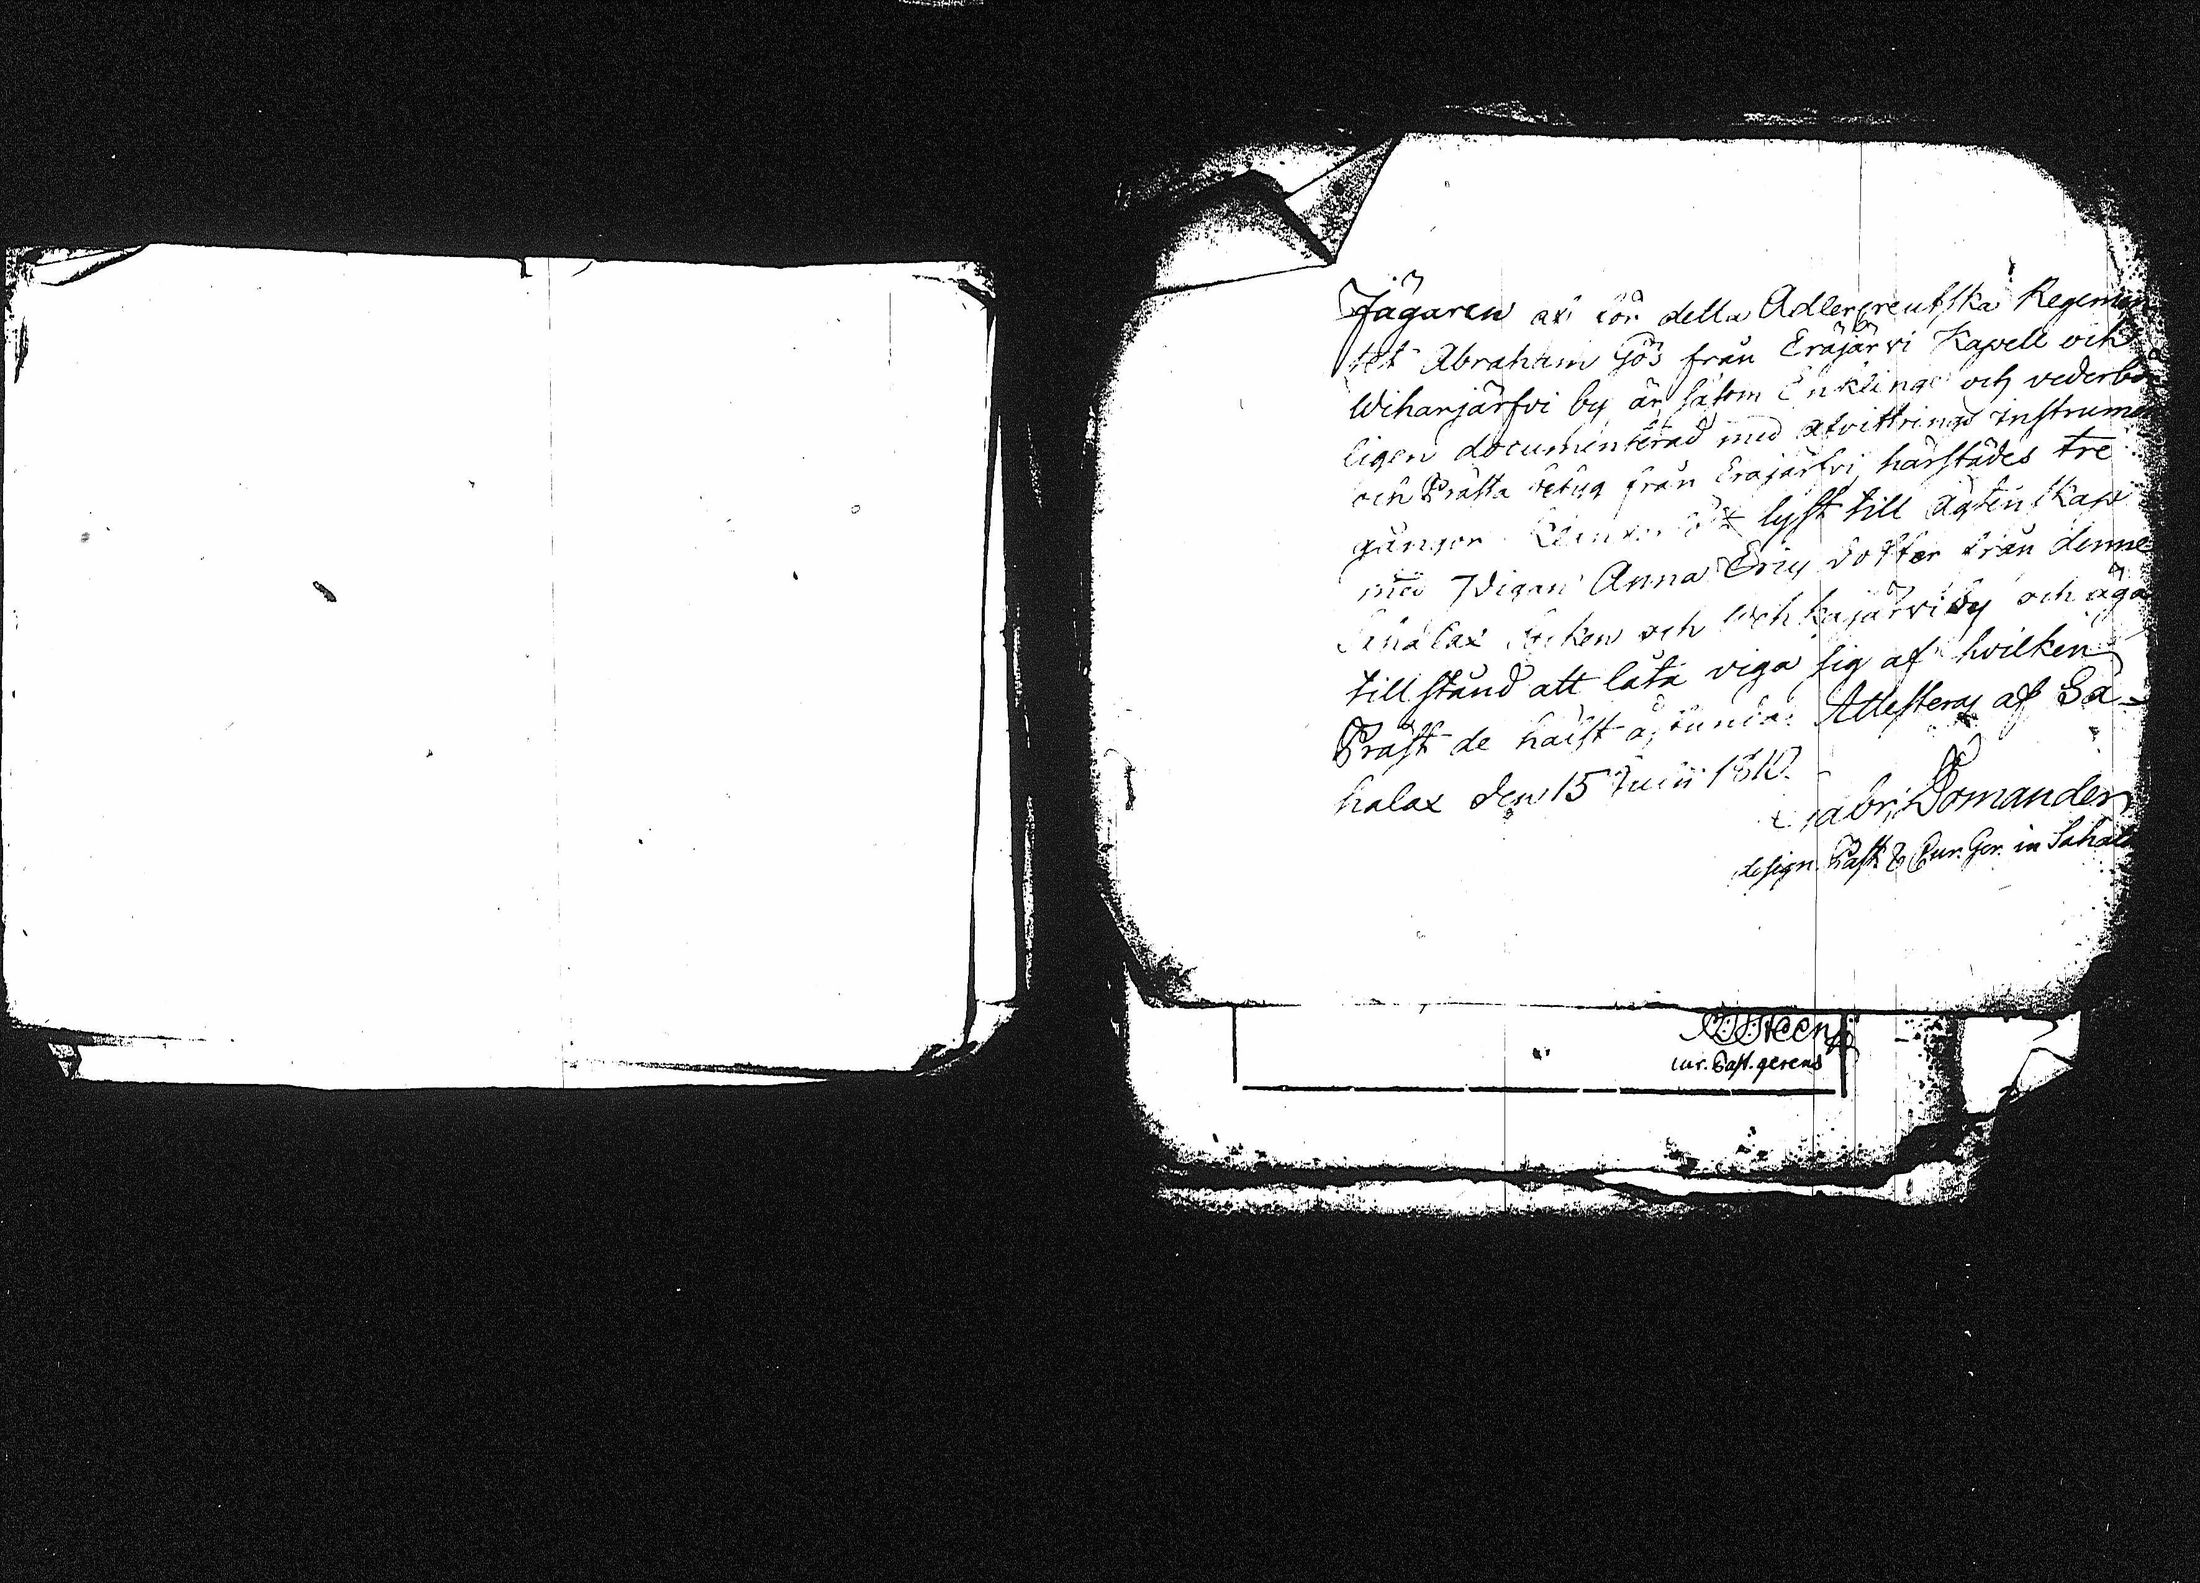 Jägaren af för detta Adlercreutzska Regemen
tet Abraham Gös från Eräjärvi Kapell och
Wiharjärfvi by är såsom Enkling och vederbör
ligen documenterad med afvittrings instrument
och Prästa betyg från Eräjärfvi härstädes tre
gångor lyst till ägtenskap
med Pigan Anna Erics dotter från denne
Sahalax Socken och kajärvi by och äga
tillstånd att låta viga sig af hvilken
Präst de hälst åstunda. Attesteras af Sa-
halax den 15 Junii 1810.
Gabr. Domander
design. Past. & Cur. Ger. in Sahalax
Steen
cur. Past. gerens